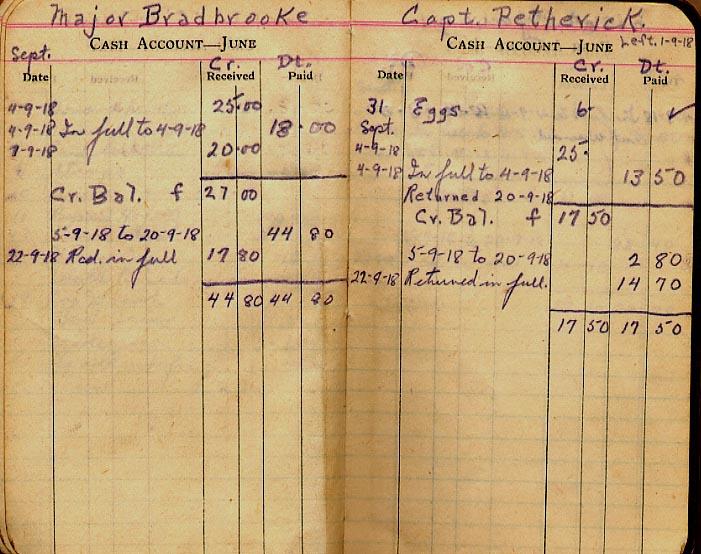 Major Bradbrooke
CASH ACCOUNT—JUNE
Sept.
Cr. Dt.
Date Received Paid
4-9-18 25.00
4-9-18 In full to 4-9-18 18.00
9-9-18 20.00
Cr. Bal. f 27 00
5-9-18 to 20-9-18 44 80
22-9-18 Rcd. in full 17 80
44 80 44 80
Capt. Petherick.
CASH ACCOUNT—JUNE Left. 1-9-18
Cr. Dt.
Date Received Paid
31 Eggs 6- ✓
Sept.
4-9-18 25.
4-9-18 In full to 4-9-18 13 50
Returned 20-9-18
Cr. Bal. f 17 50
5-9-18 to 20-9-18 2 80
22-9-18 Returned in full. 14 70
17 50 17 50